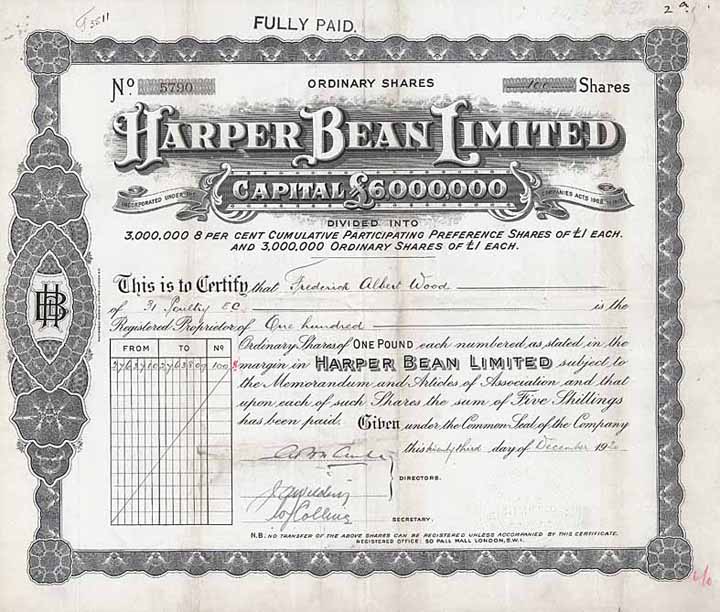 FULLY PAID.
Nº 5790 ORDINARY SHARES 100 Shares
HARPER BEAN LIMITED
CAPITAL £6000000
INCORPORATED UNDER THE COMPANIES ACTS
DIVIDED INTO
3,000,000 8 PER CENT CUMULATIVE PARTICIPATING PREFERENCE SHARES OF £1 EACH.
AND 3,000,000 ORDINARY SHARES OF £1 EACH.
This is to Certify that Frederick Albert Wood
of 31 Poultry E.C. is the
Registered Proprietor of One hundred
Ordinary Shares of ONE POUND each numbered as stated in the
margin in HARPER BEAN LIMITED subject to
the Memorandum and Articles of Association and that
upon each of such Shares the sum of Five Shillings
has been paid. Given under the Common Seal of the Company
this twenty third day of December 1920
FROM TO Nº
2763710 2763809 100
HB
DIRECTORS.
SECRETARY.
N.B. NO TRANSFER OF THE ABOVE SHARES CAN BE REGISTERED UNLESS ACCOMPANIED BY THIS CERTIFICATE.
REGISTERED OFFICE: 50 PALL MALL LONDON, S.W.1.